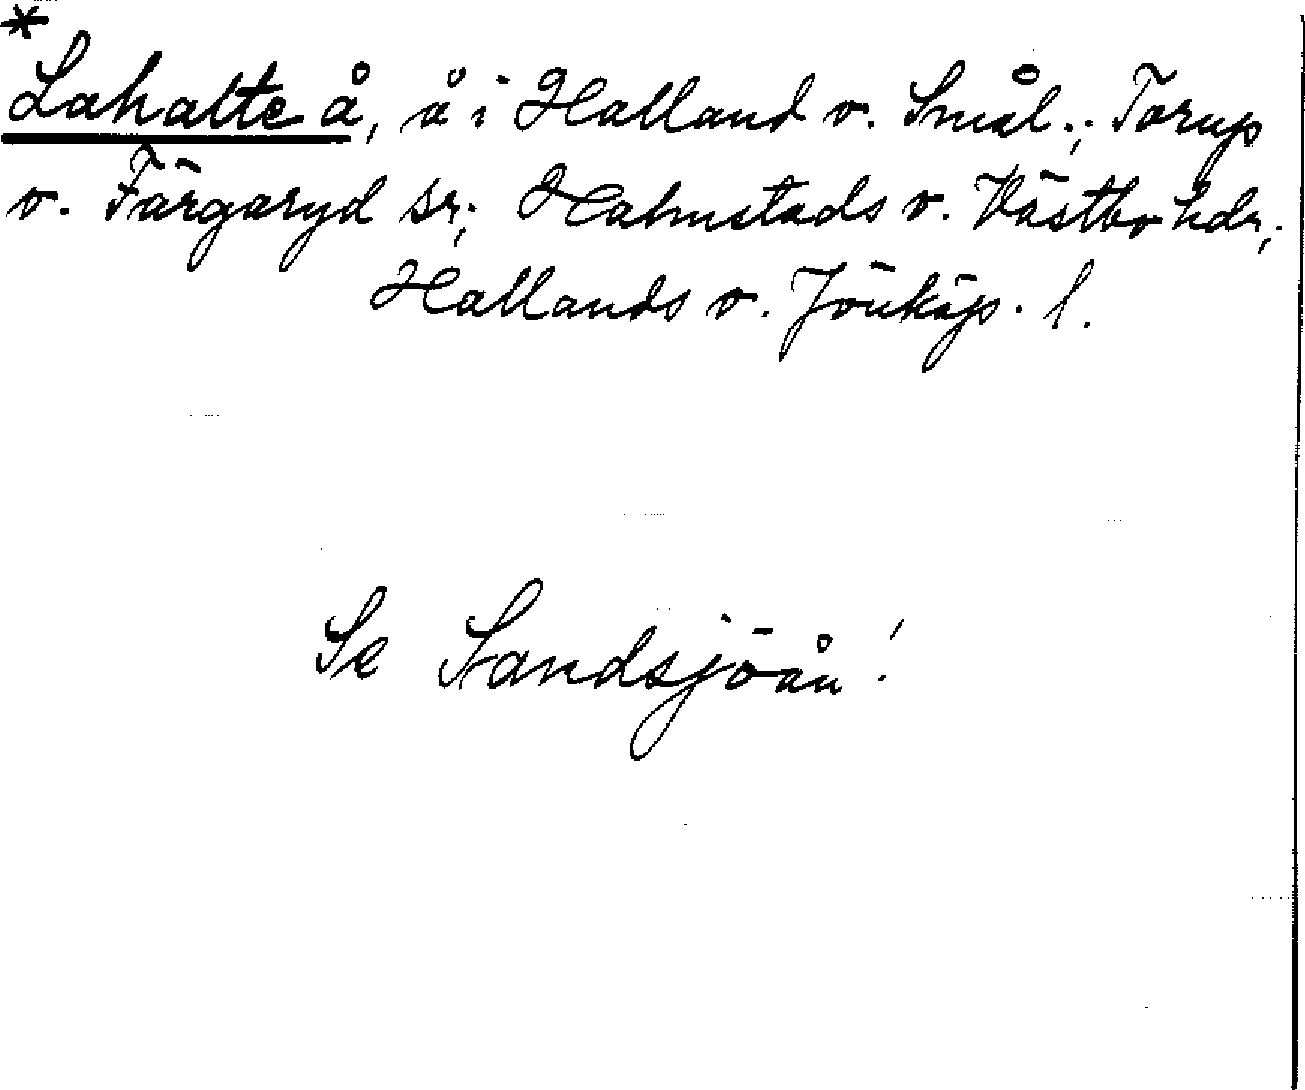 *
Lahalte å, å i Halland o. Smål.; Torup
o. Färgaryd sr; Halmstads o. Västbo hdr;
Hallands o. Jönköp. l.
Se Sandsjöån!